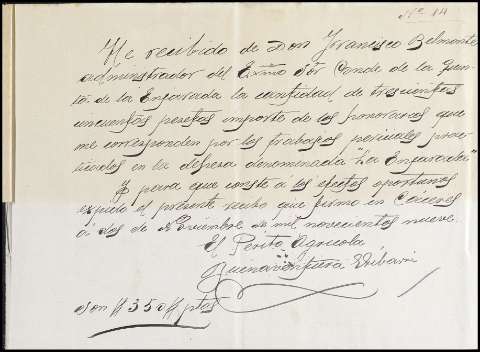 Nº 14
He recibido de Don Francisco Belmonte
administrador del Exmo Sor Conde de la
de la Enjarada la cantidad de trescientas
cincuenta pesetas importe de los honorarios que
me corresponden por los trabajos periciales prac-
ticados en la dehesa denominada "La Enjarada"
Y para que conste á los efectos oportunos
expido el presente recibo que firmo en Caceres
á dos de Diciembre de mil novecientos nueve.
El Perito Agricola
Buenaventura
Son # 350 # ptas